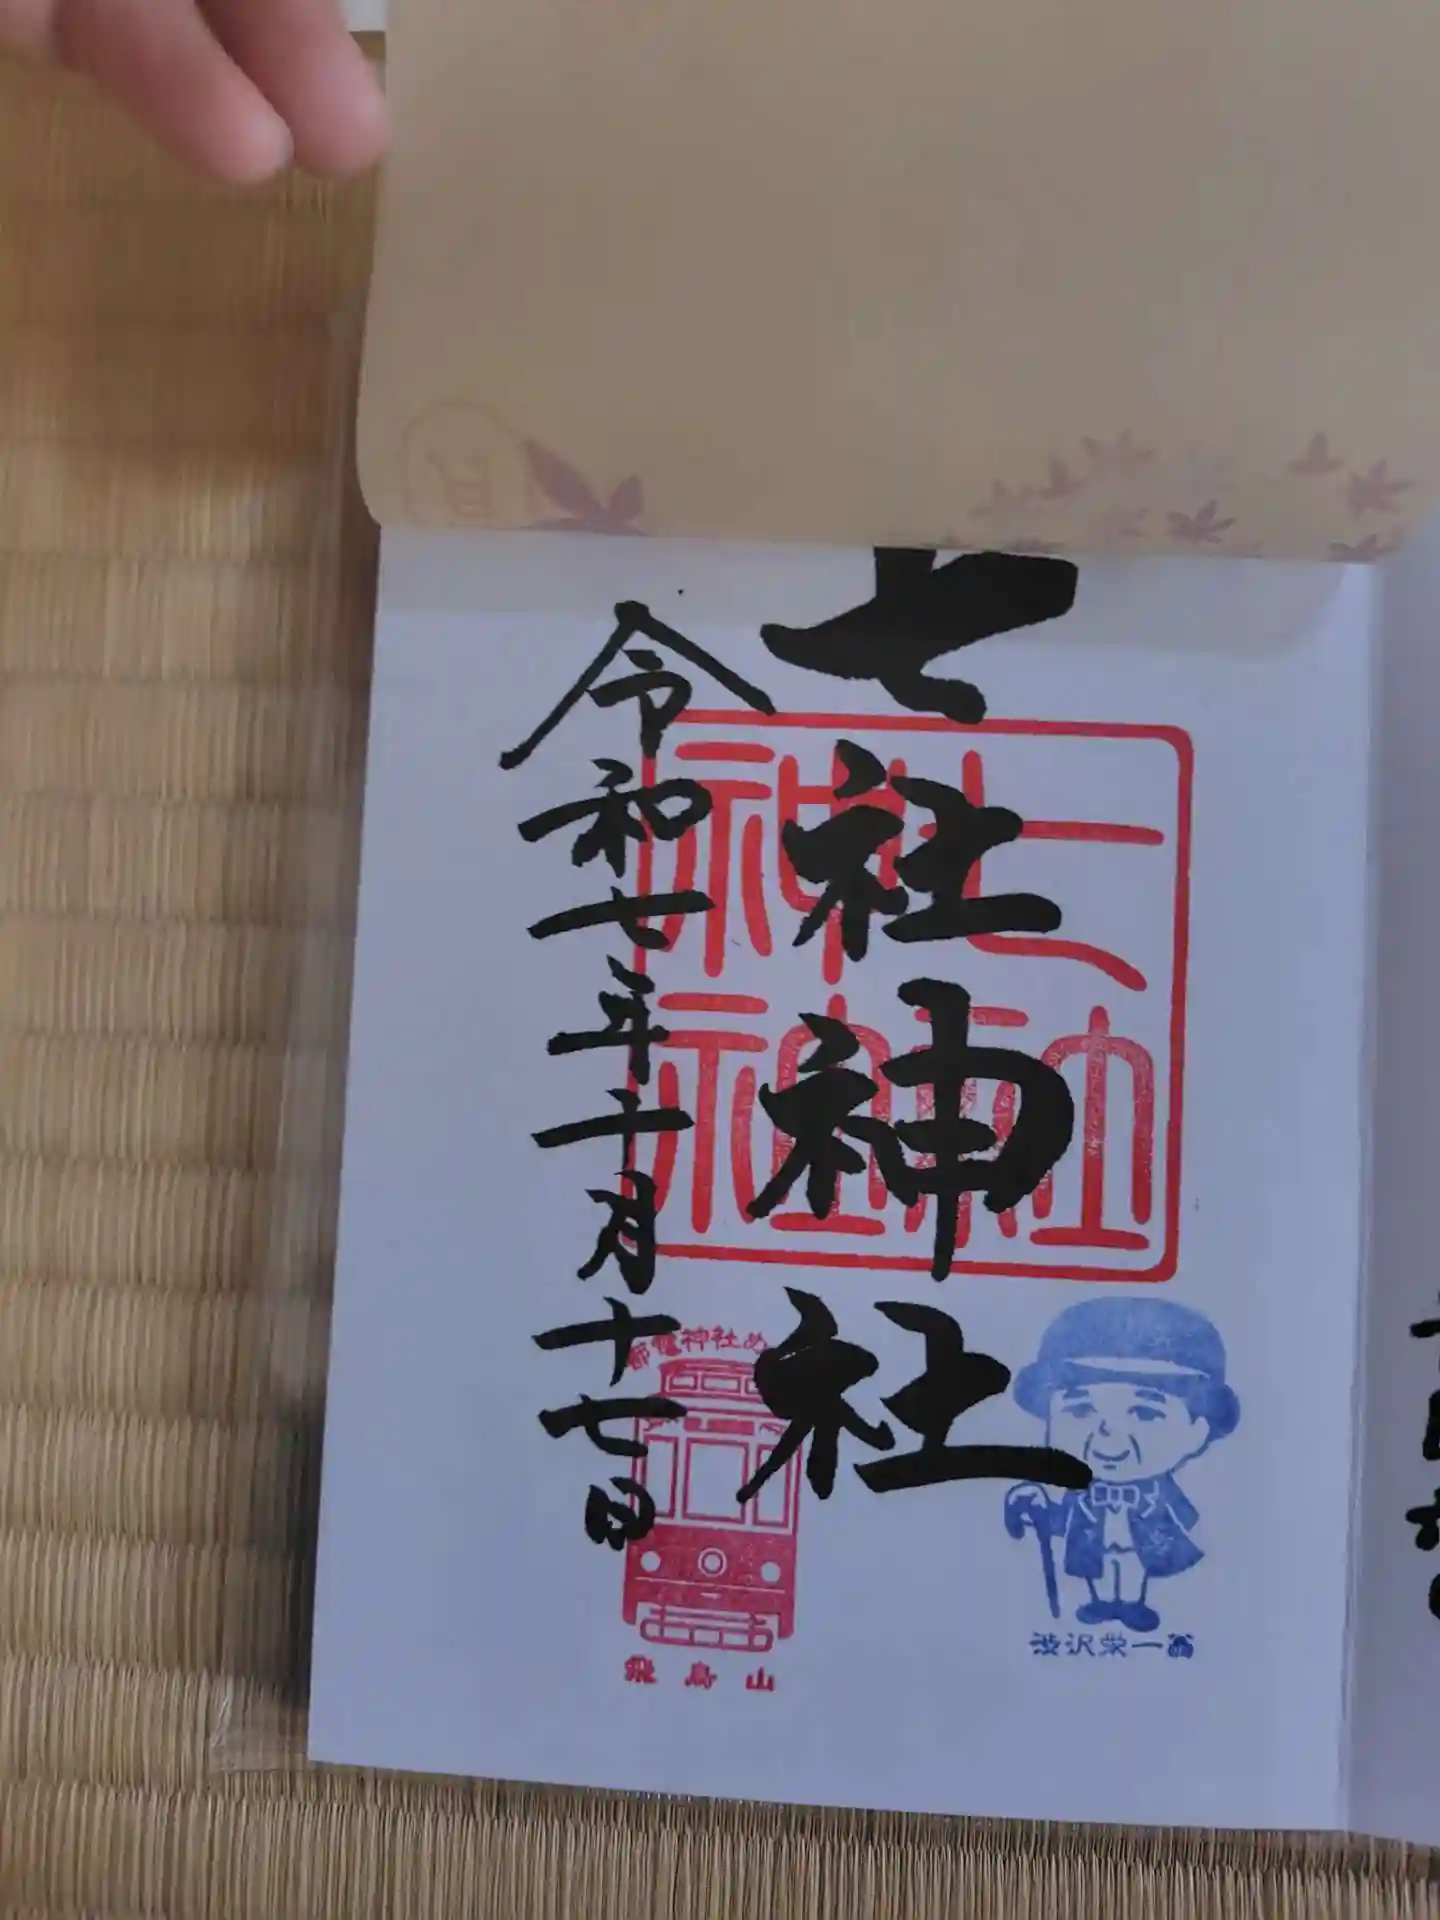 七社神社
令和七年十月十七日
七社神社
都電神社め
飛鳥山
渋沢栄一翁